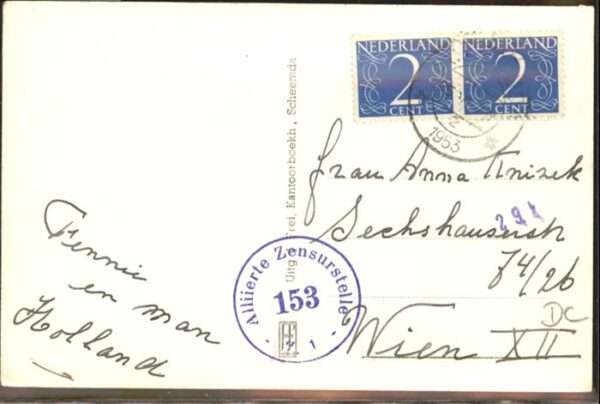 NEDERLAND
2
CENT
NEDERLAND
2
CENT
1953
Uitg. Frei, Kantoorboekh., Scheemda
Frau Anna Knizek
291
Sechshauserstr
74/26
Wien XII
DC
Alliierte Zensurstelle
153
1
Fennie
en man
Holland